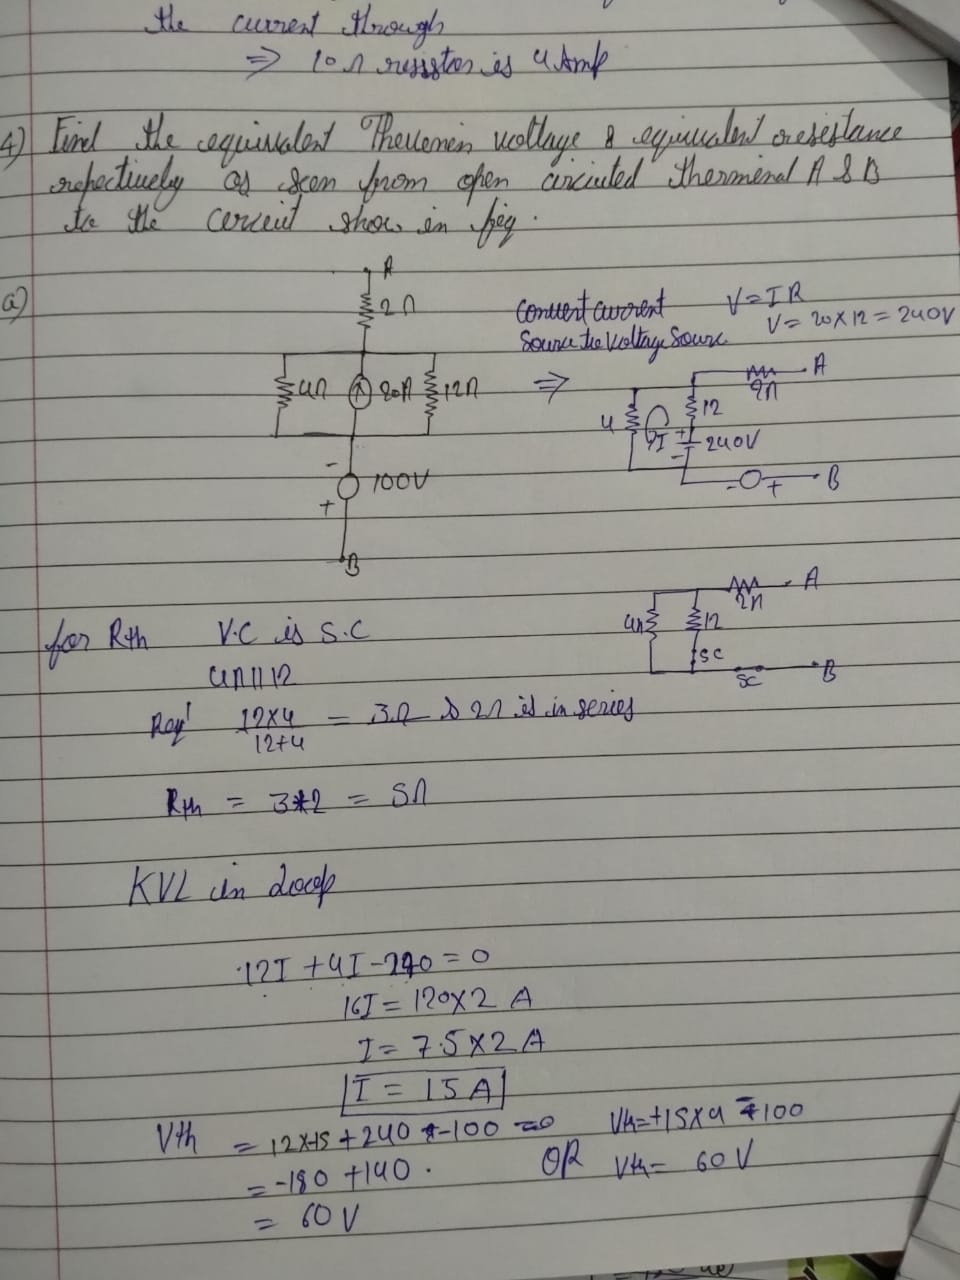 the current through
⇒ 10Ω resistor is 4 Amp
4) Find the equivalent Thevenen voltage & equivalent resistance
repectively as seen from open circiuted therminal A & B
to the circuit show in fig.
a)
A
2Ω
4Ω
20A
12Ω
-
100V
+
B
Convert current
Source to Voltage Source
V=IR
V=20×12=240V
⇒
A
2Ω
4
I
12
+
-
240V
- +
B
for Rth V.C is S.C
4Ω||12
Req' 12×4/12+4 = 3Ω & 2Ω is in series
Rth = 3+2 = 5Ω
A
2Ω
4Ω
12
SC
SC
B
KVL in loop
12I + 4I - 240 = 0
16I = 120×2 A
I = 7.5×2 A
I = 15 A
Vth = 12×15 + 240 -100 =0
= -180 + 140.
= 60 V
OR
Vth=+15×4 +100
Vth= 60 V